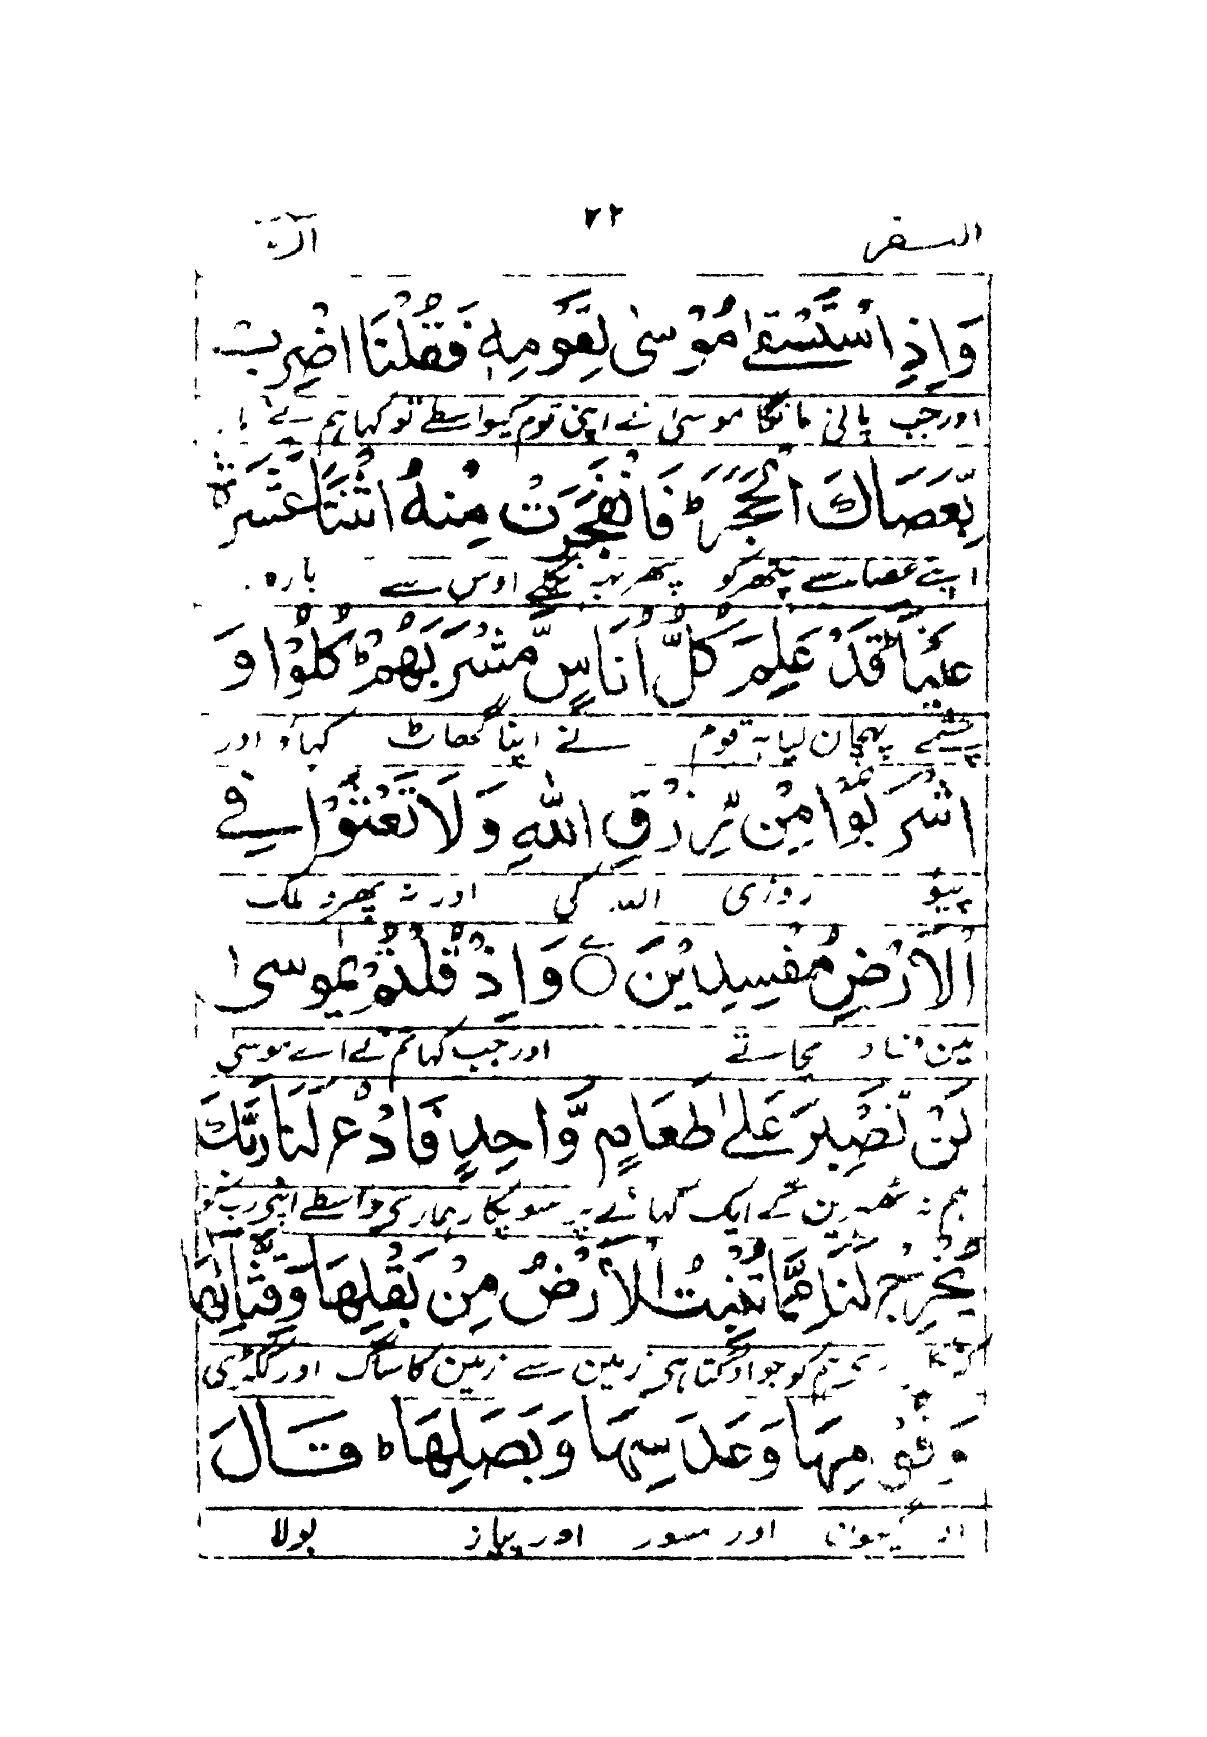 البقر ٢٢ الٓمّٓ
وَاِذِ اسْتَسْقٰے مُوْسٰی لِقَوْمِهٖ فَقُلْنَا اضْرِبْ
اور جب پانی مانگا موسیٰ نے اپنی قوم کیواسطے تو کہا ہم نے
بِّعَصَاكَ الْحَجَرَ ؕ فَانْفَجَرَتْ مِنْهُ اثْنَتَا عَشْرَةَ
اپنے عصا سے پتھر کو پھر بہہ نکلے اوس سے بارہ
عَيْنًا ؕ قَدْ عَلِمَ كُلُّ اُنَاسٍ مَّشْرَبَهُمْ ؕ كُلُوْا وَ
چشمے پہچان لیا ہر قوم نے اپنا گھاٹ کہاؤ اور
اشْرَبُوْا مِنْ رِّزْقِ اللّٰهِ وَلَا تَعْثَوْا فِے
پیو روزی اللہ کی اور نہ پھرو ملک
الْاَرْضِ مُفْسِدِيْنَ ○ وَاِذْ قُلْتُمْ يٰمُوسٰی
مین فساد مچاتے اور جب کہا تم نے اے موسیٰ
لَنْ نَّصْبِرَ عَلٰی طَعَامٍ وَّاحِدٍ فَادْعُ لَنَا رَبَّكَ
ہم نہ ٹھہرین گے ایک کہانے پر سو پکار ہماری واسطے اپنی رب کو
يُخْرِجْ لَنَا مِمَّا تُنْبِتُ الْاَرْضُ مِنْ بَقْلِهَا وَقِثَّآئِهَا
کو جو اوگتا ہی زمین سے زمین کا ساگ اور ککڑی
وَفُوْمِهَا وَعَدَسِهَا وَبَصَلِهَا ؕ قَالَ
اور گیہون اور مسور اور پیاز بولا